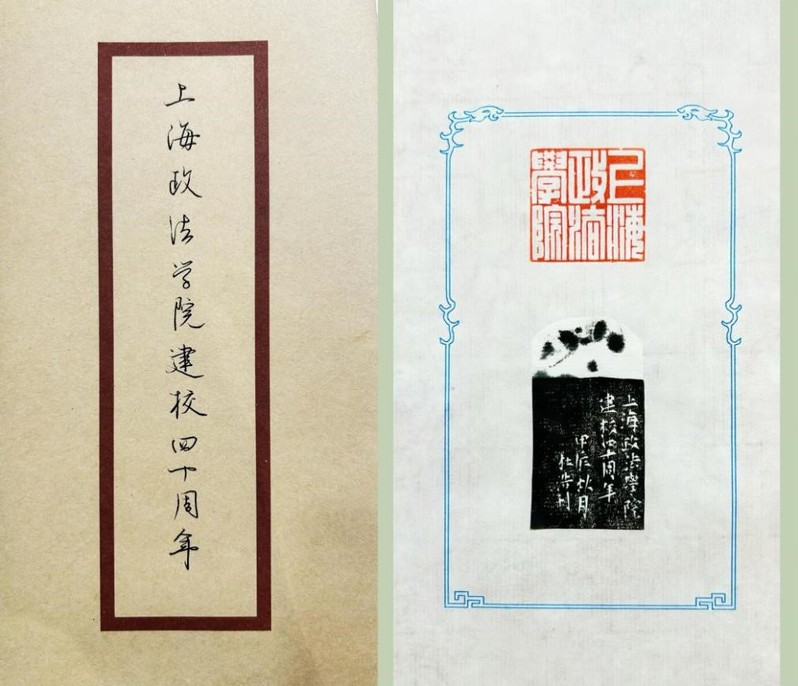 上海政法学院建校四十周年
上海
政法
學院
上海政法學院
建校四十周年
甲辰秋月